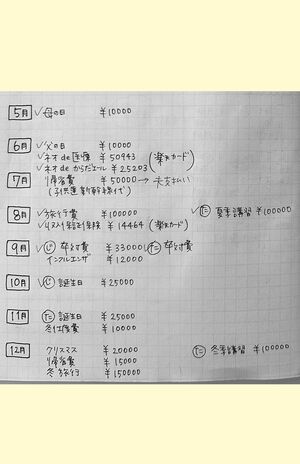 5月 ✓母の日 ¥10000
6月 ✓父の日 ¥10000
✓ネオde医療 ¥50943 (楽天カード)
✓ネオdeからだエール ¥25203
7月 帰省費 ¥50000→未支払い
(子供達新幹線代)
8月 ✓旅行費 ¥100000 ✓(た)夏季講習 ¥100000
✓収入保証保険 ¥14464 (楽天カード)
9月 ✓(じ)卒対費 ¥33000 (た)卒対費
インフルエンザ ¥12000
10月 ✓(じ)誕生日 ¥25000
11月 (た)誕生日 ¥25000
冬仕度費 ¥10000
12月 クリスマス ¥20000 (た)冬季講習 ¥100000
帰省費 ¥15000
冬旅行 ¥150000